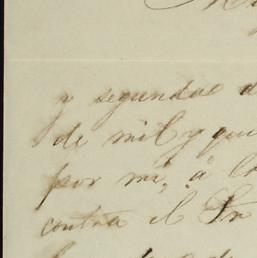 y segundas d
de mil y qui
por mi, á
contra el Sr